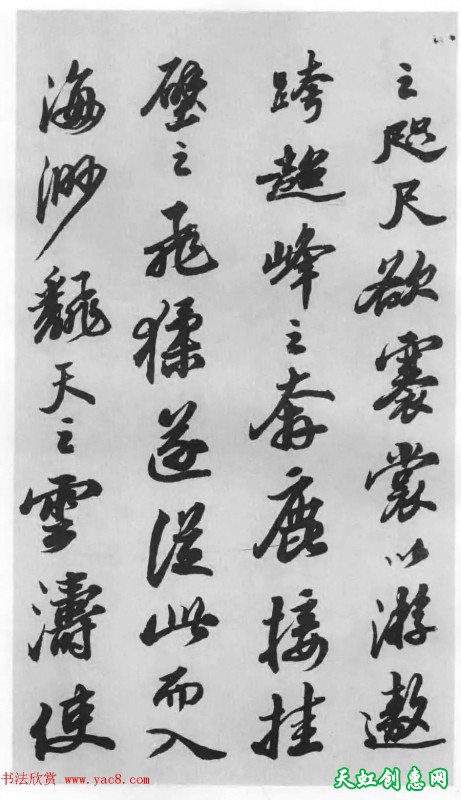 之咫尺欲褰裳以游遨
跨超峰之奔鹿接挂
壁之飛猱遂從此而入
海渺飜天之雲濤使
书法欣赏 www.yac8.com
天虹创惠网